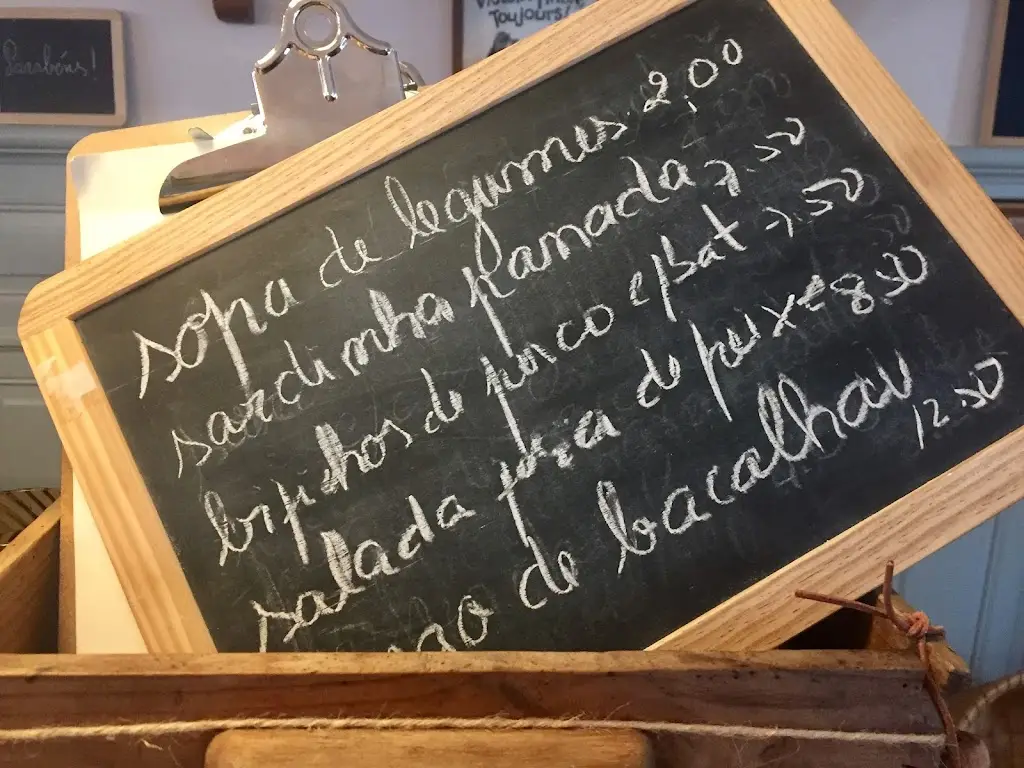 Parabéns!
Toujours!
sopa de legumes 2,00
sardinha panada 7.50
bifinhos de porco c/ bat 7,50
salada fria de peixe 8.50
de bacalhau
12.50